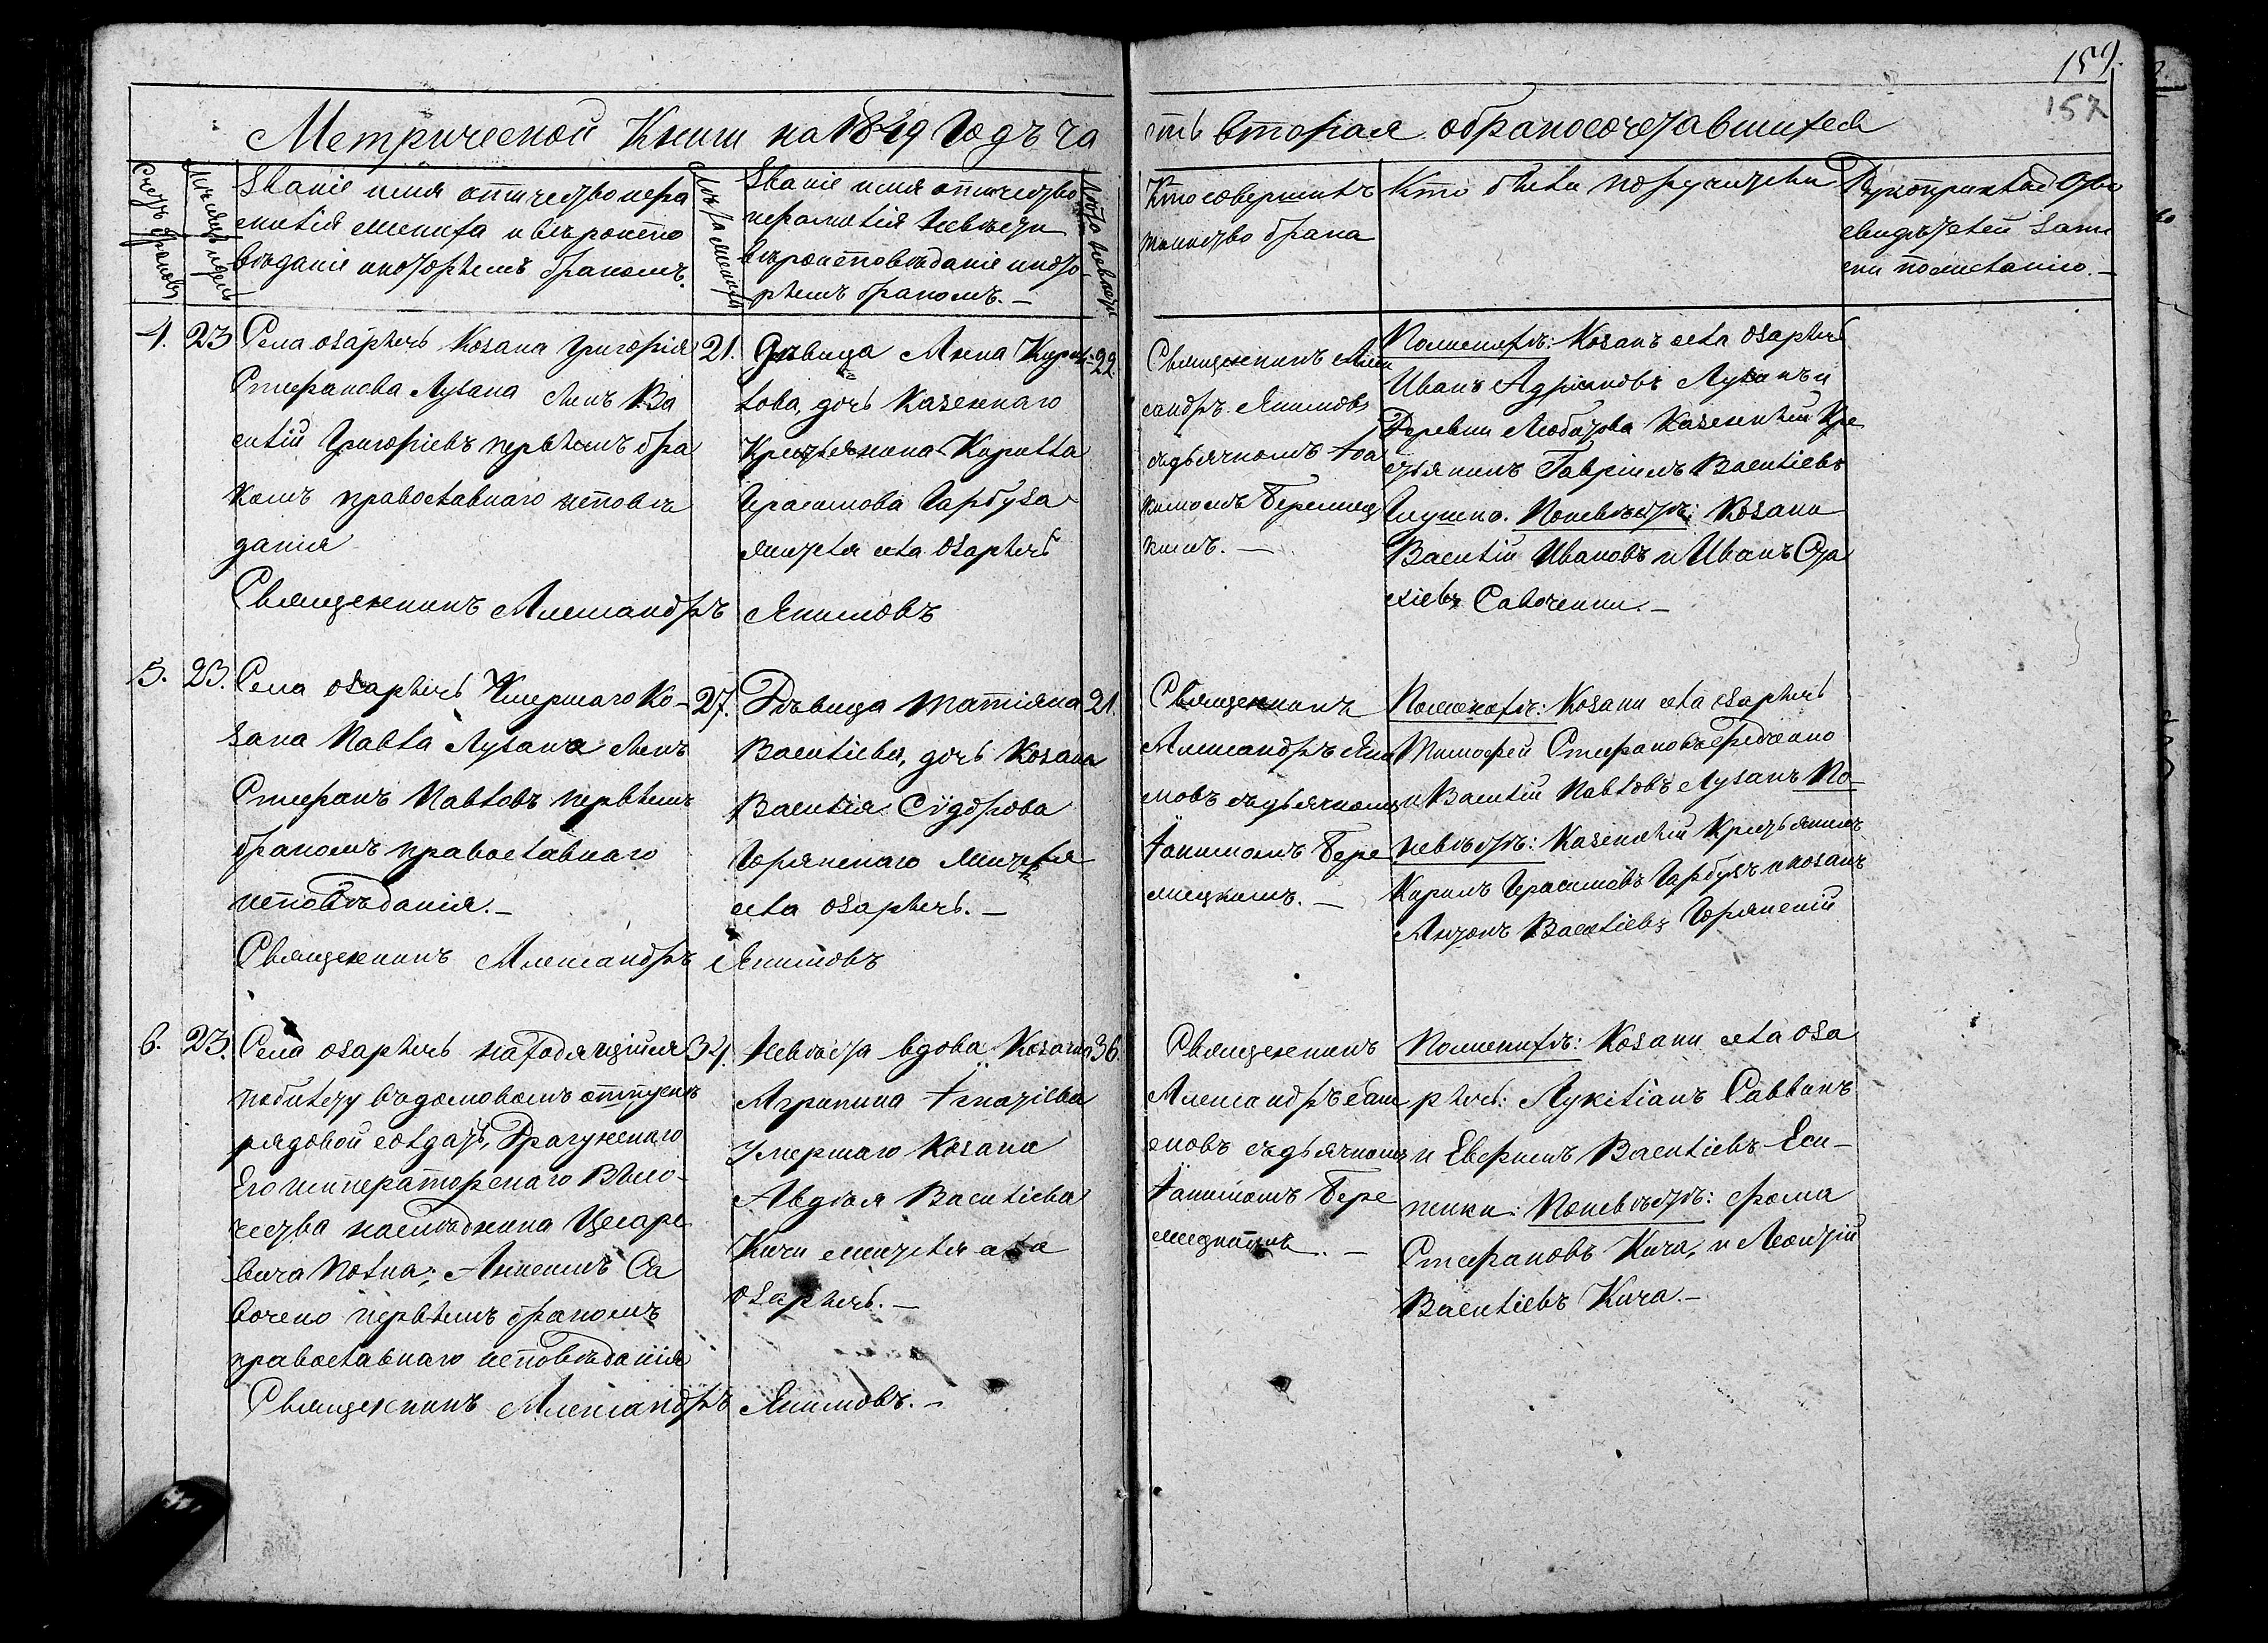 159.
157
Метрической Книги на 1849 Годъ ча
сть вторая о бракосочетавшихся
Счетъ браковъ
Месяцъ и день
Званіе имя отчество и фа
милія жениха и вѣроиспо
вѣданіе и которымъ бракомъ.
Лѣта жениха
Званіе имя отчество
и фамилія Невѣсты
вѣроисповѣданіе и кото
рымъ бракомъ. —
Лѣта невѣсты
Кто совершилъ
таинство брака
Кто были поручители
Рукоприкладство
свидѣтелей записи по желанію. —
4. 23 Села Озарычъ Козака Григорія
Стефанова Лузана Сынъ Ва
силій Григоріевъ первымъ бра
комъ православнаго исповѣ
данія
21.
Дѣвица Анна Кирил-
лова, дочь Казеннаго
Крестьянина Кирилла
Герасимова Гарбуза
жителя села Озарычъ
22
Священникъ Алек
сандръ Якимовъ
съ дьячкомъ Іоа
кимомъ Бережец
кимъ. —
По женихѣ: Козакъ села Озарычъ
Иванъ Адріановъ Лузанъ и
Деревни Любитова Казенный Кре
стьянинъ Гавріилъ Васильевъ
Глушко. По невѣстѣ: Козаки
Василій Ивановъ и Иванъ
Савоченки. —
Священникъ Александръ Якимовъ
5. 23. Села Озарычъ Умершаго Ко-
зака Павла Лузана Сынъ
Стефанъ Павловъ первымъ
бракомъ православнаго
исповѣданія. —
27.
Дѣвица Татіяна
Васильева, дочь Козака
Василія Сідорова
Горянскаго жителя
села Озарычъ. —
21.
Священникъ
Александръ Яки
мовъ съ дьячкомъ
Іакимомъ Бере
жецкимъ. —
По женихѣ: Козаки села Озарычъ
Тимофей Стефановъ
и Василій Павловъ Лузанъ По-
невѣстѣ: Казенный Крестьянинъ
Кирилъ Герасимовъ Гарбузъ и козакъ
Антонъ Васильевъ Горянскій
Священникъ Александръ Якимовъ
6. 23. Села Озарычъ находящійся
по билету въ домовомъ отпускѣ
рядовой солдатъ, Драгунскаго
Его императорскаго Высо-
чества наслѣдника Цесаре
вича Полка; Са
воченко первымъ бракомъ
православнаго исповѣданія
34.
Невѣста вдова Козачка
Агрипина Игнатіева
Умершаго Козака
Авдѣя Васильева
Кичи жителя села
Озарычъ. —
36.
Священникъ
Александръ Яки
мовъ съ дьячкомъ
Іакимомъ Бере
жецкимъ. —
По женихѣ: Козаки села Оза
рычъ: Лукиліанъ Саввинъ
и Евфимъ Васильевъ Еси-
пенки: По невѣстѣ: Фома
Стефановъ Кича, и Леонтій
Васильевъ Кича. —
Священникъ Александръ Якимовъ. —